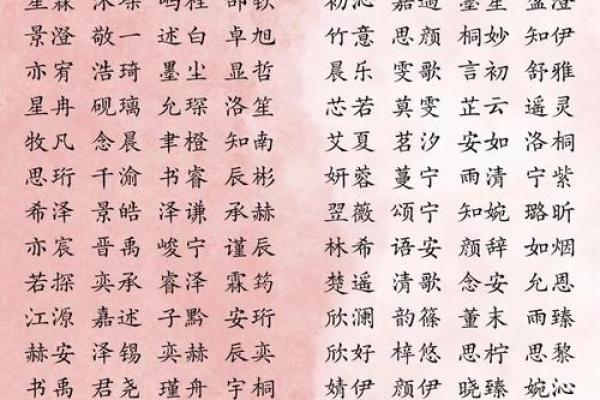 景澄 敬一 述白 卓旭 竹意 思颜 桐妙 知伊
亦宥 浩琦 墨尘 显哲 晨乐 雯歌 言初 舒雅
星冉 砚璃 允琛 洛笙 芯若 莫雯 芷云 遥灵
牧凡 念晨 聿橙 知南 艾夏 茗汐 安如 洛桐
思珩 千渝 书睿 辰彬 妍蓉 蔓宁 雨清 宁紫
希泽 景皓 泽谦 承赫 翌薇 颂宁 知婉 璐昕
亦宸 晋禹 峻宁 谨辰 林希 语安 颜辞 如烟
若探 奕承 睿泽 霖筠 楚遥 清歌 念安 允恩
江源 嘉述 子黔 安珩 欣澜 韵篠 董末 雨臻
赫安 泽锡 奕赫 辰奕 欣好 梓悠 思柠 思黎
书禹 君尧 瑾舟 宇桐 婧伊 颜伊 晓臻 婉沁